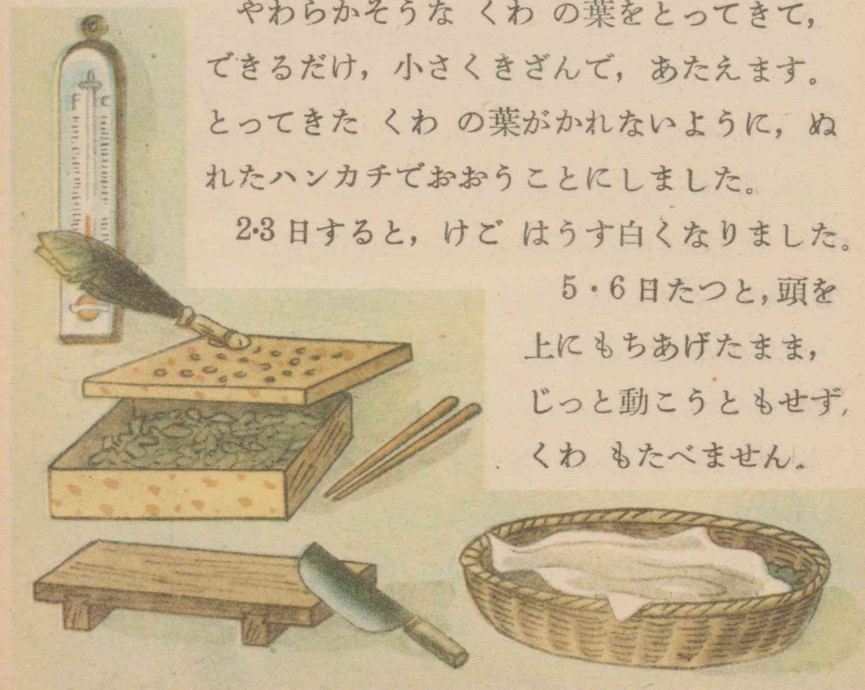 やわらかそうな くわ の葉をとってきて，
できるだけ，小さくきざんで，あたえます。
とってきた くわ の葉がかれないように，ぬ
れたハンカチでおおうことにしました。
2·3日すると，けご はうす白くなりました。
5・6日たつと，頭を
上にもちあげたまま，
じっと動こうともせず，
くわ もたべません。
F C